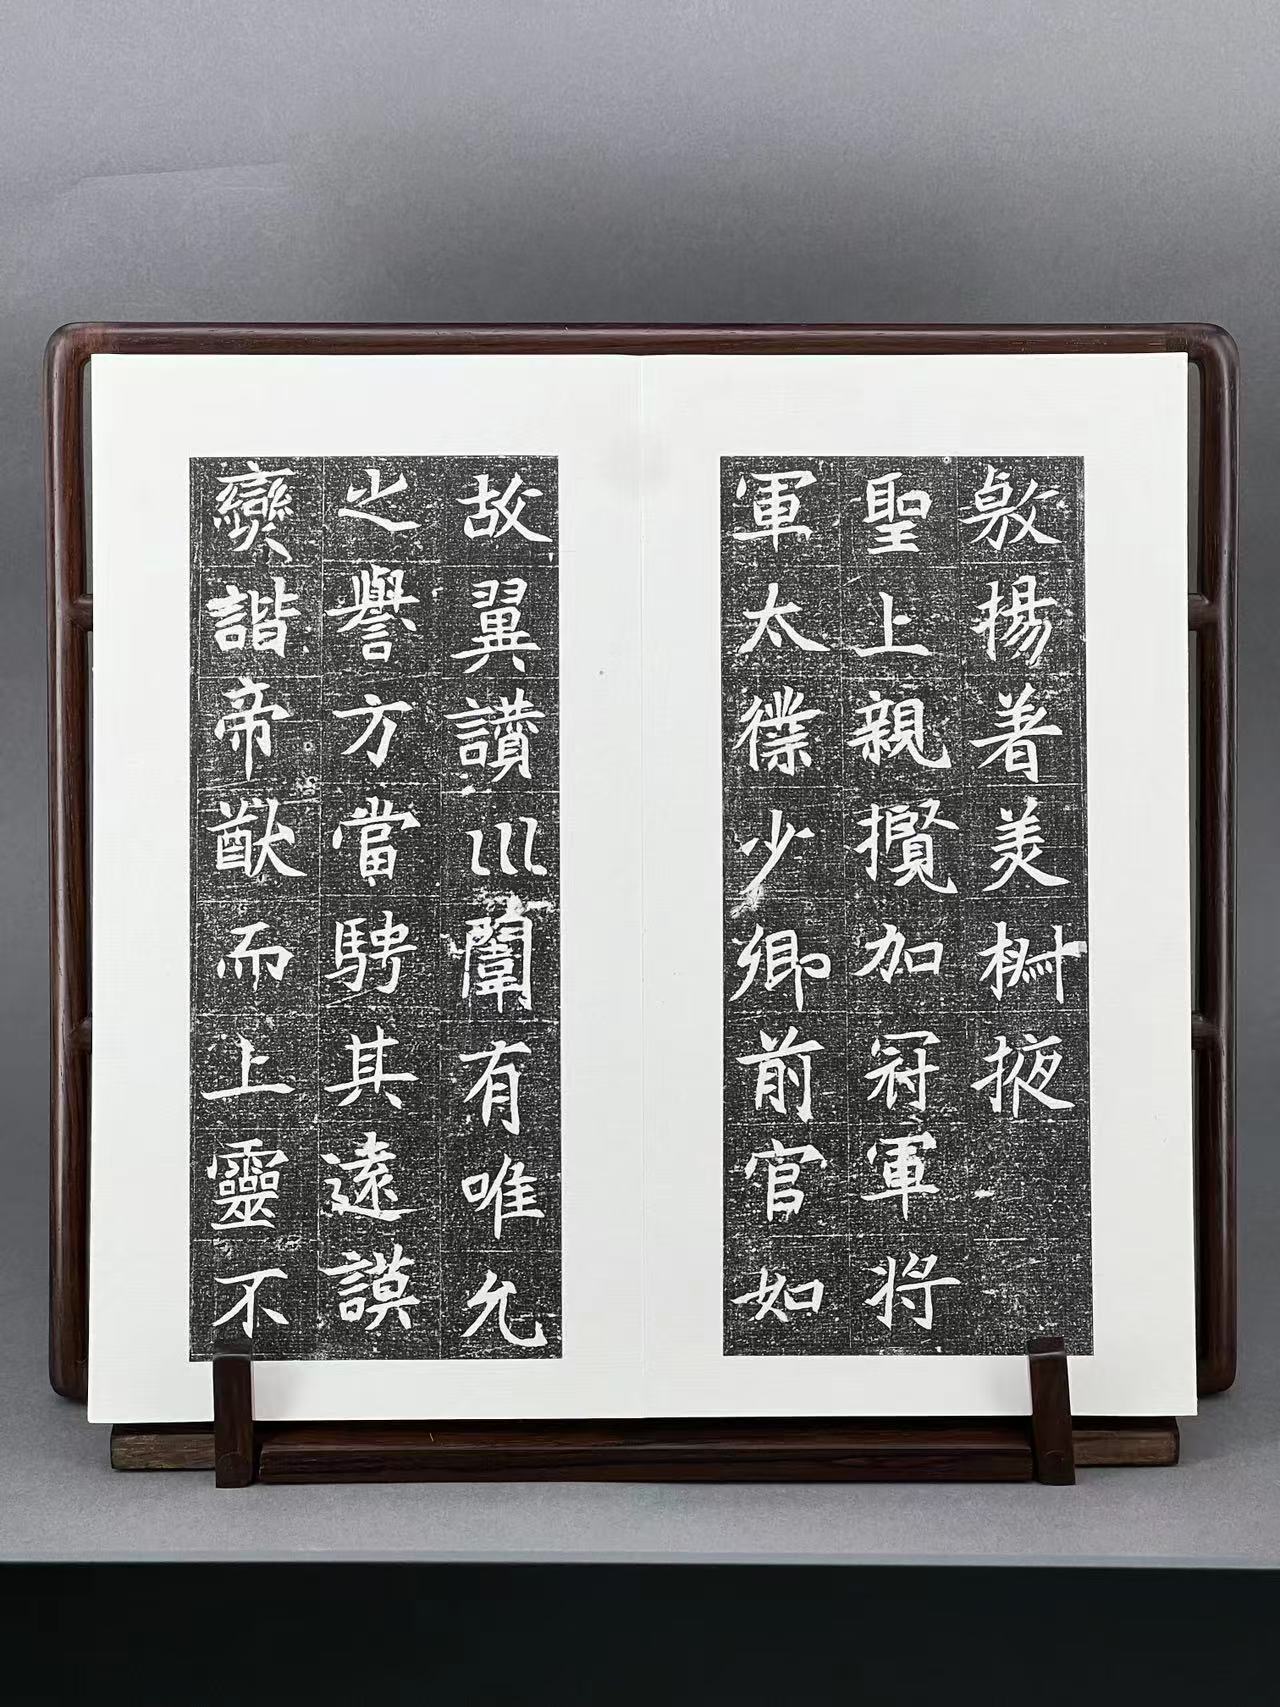 敷揚着美掖
聖上親攬加冠軍將
軍太僕少卿前官如
故翼讚川闈有唯允
之譽方當騁其遠謨
燮諧帝猷而上靈不